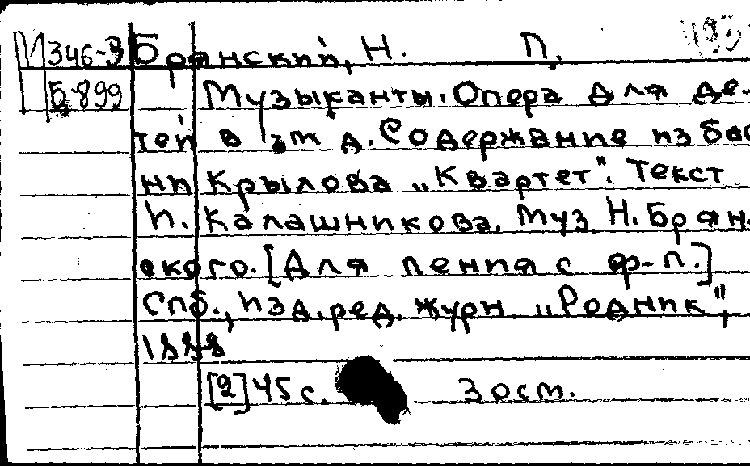 М 346-3 Брянский, Н. П.
Б-899 Музыканты. Опера для де-
тей в 1м д. Содержание из бас
ни Крылова „Квартет". Текст
П. Калашникова. Муз Н. Брян.
ского. [Для пения с ф-п.]
Спб., Изд. ред. журн „Родник",
1888
[2] 45 с. 3 ост.